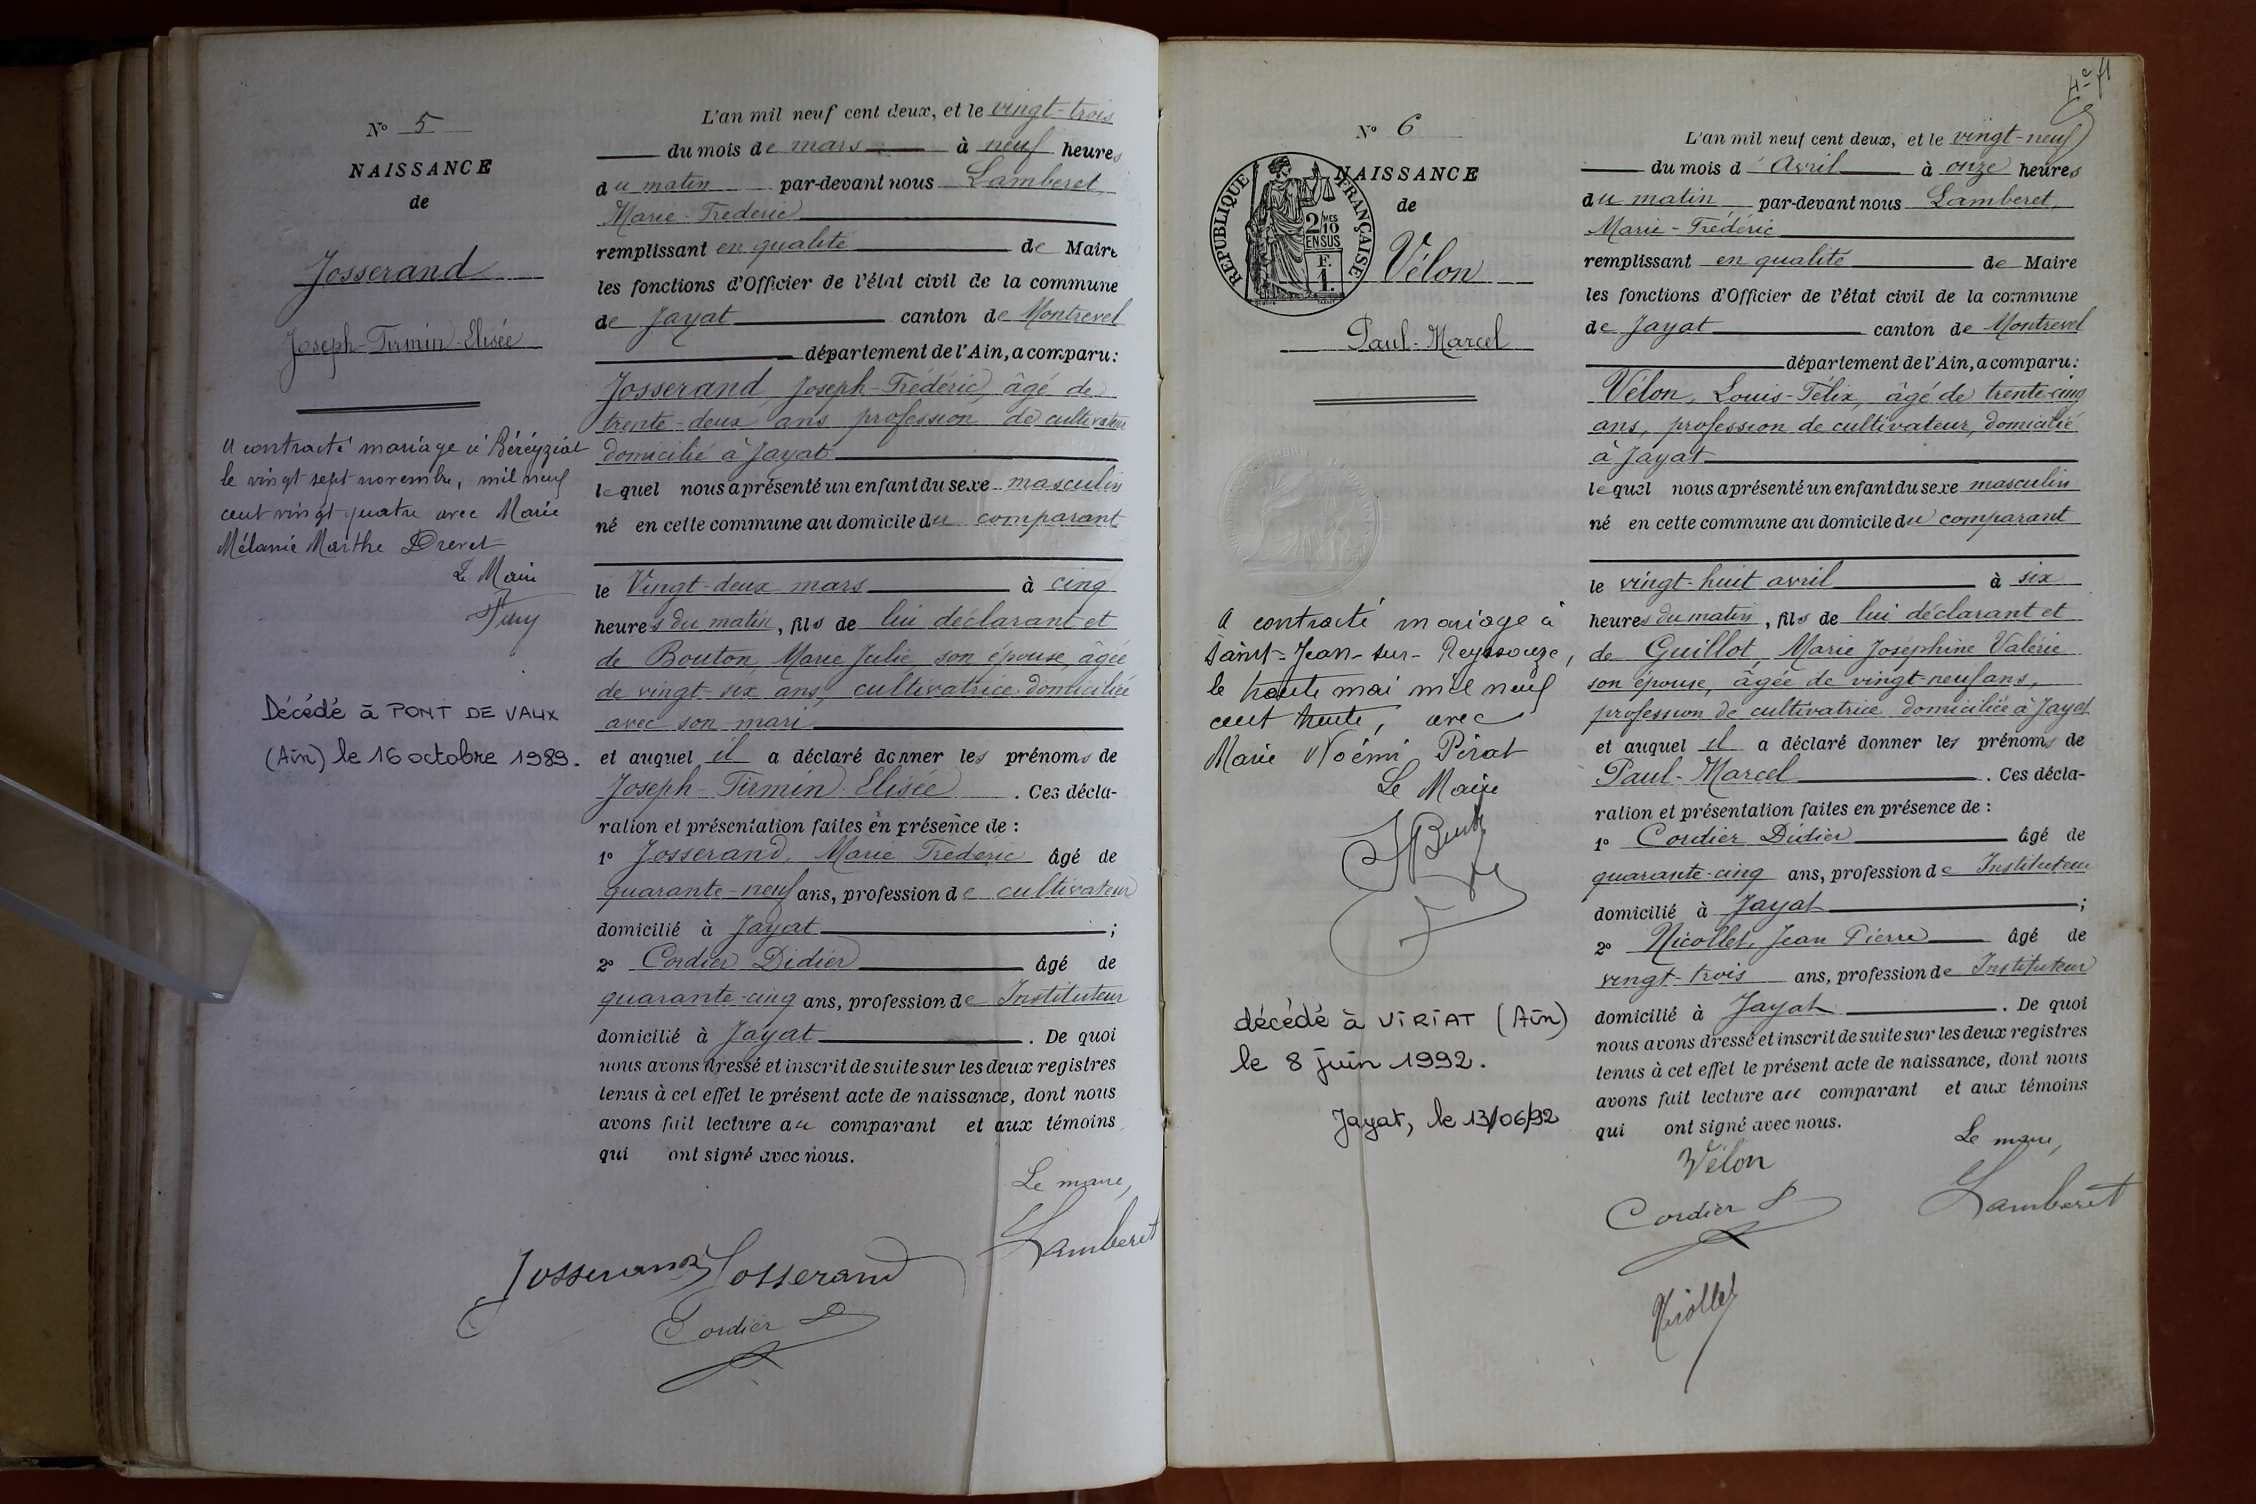 N° 5
NAISSANCE
de
Josserand
Joseph-Firmin-Elisée
A contracté mariage à Béréyziat
le vingt sept novembre, mil neuf
cent vingt quatre avec Marie
Mélanie Marthe Drevet
Le Maire
Décédé à PONT DE VAUX
(Ain) le 16 octobre 1989.
L'an mil neuf cent deux, et le vingt-trois
du mois de mars à neuf heures
du matin par-devant nous Lamberet
Marie-Frédéric
remplissant en qualité de Maire
les fonctions d'Officier de l'état civil de la commune
de Jayat canton de Montrevel
département de l'Ain, a comparu :
Josserand Joseph-Frédéric, âgé de
trente-deux ans profession de cultivateur
domicilié à Jayat
lequel nous a présenté un enfant du sexe masculin
né en cette commune au domicile du comparant
le Vingt-deux mars à cinq
heures du matin, fils de lui déclarant et
de Bouton, Marie Julie, son épouse, âgée
de vingt-six ans, cultivatrice domiciliée
avec son mari
et auquel il a déclaré donner les prénoms de
Joseph-Firmin Elisée. Ces décla-
ration et présentation faites en présence de :
1° Josserand, Marie Frédéric âgé de
quarante-neuf ans, profession de cultivateur
domicilié à Jayat ;
2° Cordier Didier âgé de
quarante-cinq ans, profession de Instituteur
domicilié à Jayat. De quoi
nous avons dressé et inscrit de suite sur les deux registres
tenus à cet effet le présent acte de naissance, dont nous
avons fait lecture au comparant et aux témoins
qui ont signé avec nous.
Le maire,
Lamberet
Josserand Josserand
Cordier D
4e f
N° 6
NAISSANCE
de
RÉPUBLIQUE FRANÇAISE
2/10MES
EN SUS
F.
1.
Vélon
Paul-Marcel
A contracté mariage à
Saint-Jean-sur-Reyssouze,
le trente mai mil neuf
cent trente, avec
Marie Noémi Pérat
Le Maire
décédé à VIRIAT (Ain)
le 8 juin 1992.
Jayat, le 13/06/92
L'an mil neuf cent deux, et le vingt-neuf
du mois d'Avril à onze heures
du matin par-devant nous Lamberet,
Marie-Frédéric
remplissant en qualité de Maire
les fonctions d'Officier de l'état civil de la commune
de Jayat canton de Montrevel
département de l'Ain, a comparu :
Vélon, Louis-Félix, âgé de trente-cinq
ans, profession de cultivateur, domicilié
à Jayat
lequel nous a présenté un enfant du sexe masculin
né en cette commune au domicile du comparant
le vingt-huit avril à six
heures du matin, fils de lui déclarant et
de Guillot, Marie Joséphine Valérie
son épouse, âgée de vingt-neuf ans,
profession de cultivatrice domiciliée à Jayat
et auquel il a déclaré donner les prénoms de
Paul-Marcel. Ces décla-
ration et présentation faites en présence de :
1° Cordier Didier âgé de
quarante-cinq ans, profession de Instituteur
domicilié à Jayat ;
2° Nicollet, Jean Pierre âgé de
vingt-trois ans, profession de Instituteur
domicilié à Jayat. De quoi
nous avons dressé et inscrit de suite sur les deux registres
tenus à cet effet le présent acte de naissance, dont nous
avons fait lecture au comparant et aux témoins
qui ont signé avec nous.
Le maire,
Vélon
Cordier D
Lamberet
Nicollet